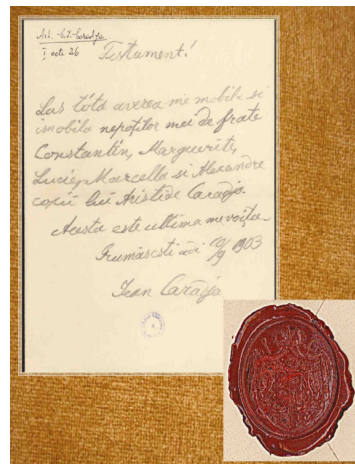 Ach. C.C. Caradja
I acte 26
Testament!
Las tótă averea me mobila si
imobila nepoților mei de frate
Constantin, Marguerite,
Lucie, Marcella si Alexandre
copii lui Aristide Caradja.
Acesta este ultima me voița.
Grumăzesti 10/9 1903
Jean Caradja